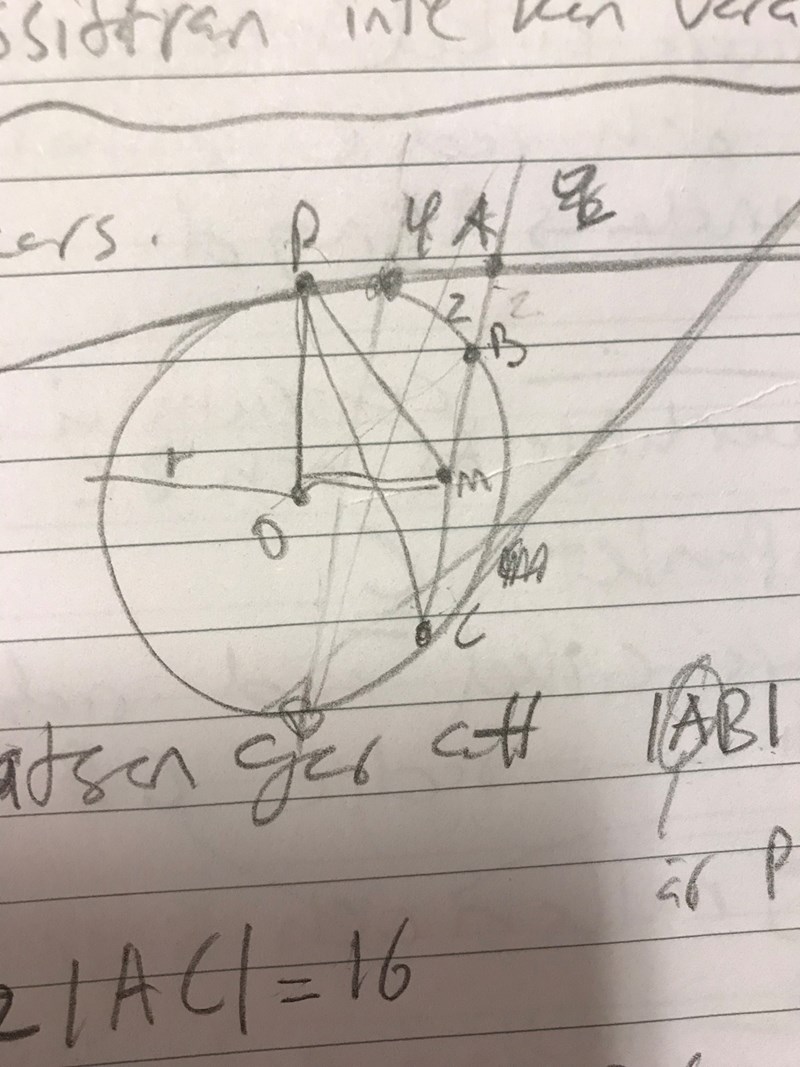 inte kan vara
P 4 A
2 2
B
r
M
O
C
ger att |AB|
är P
2|AC| = 16